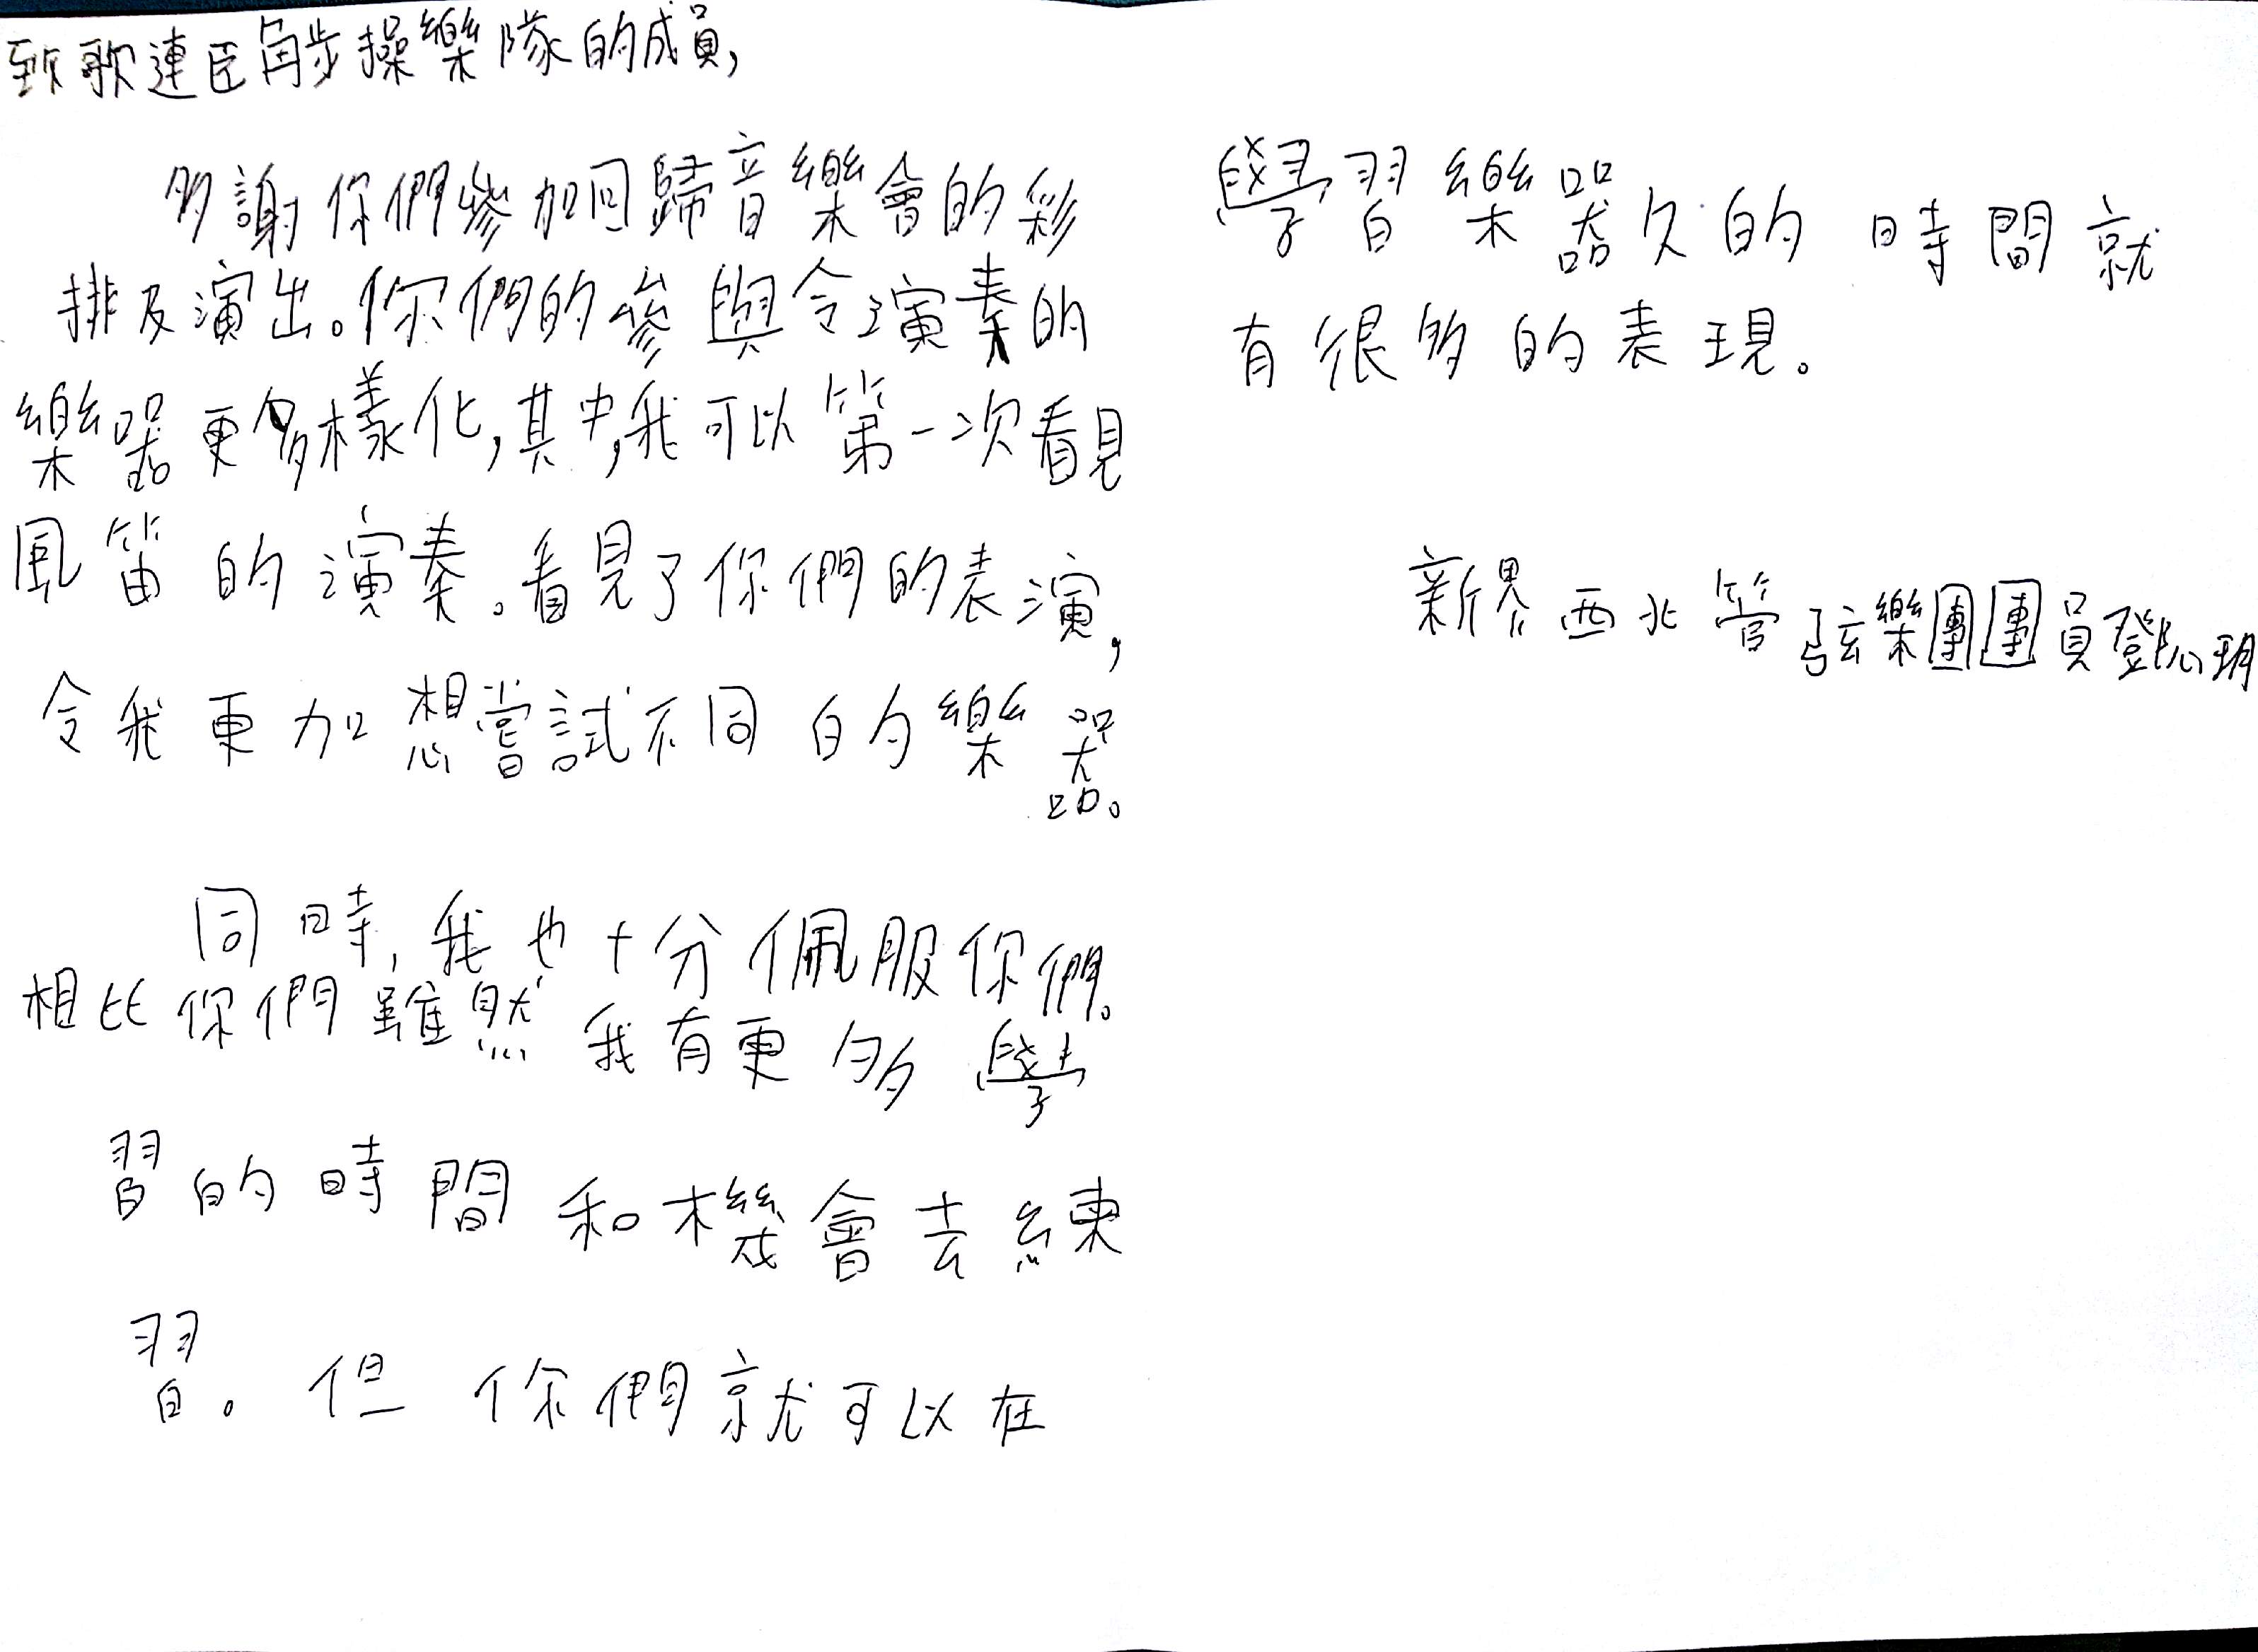 致歌連臣角步操樂隊的成員,
多謝你們參加回歸音樂會的彩
排及演出。你們的參與令演奏的
樂器更多樣化,其中,我可以第一次看見
風笛的演奏。看見了你們的表演,
令我更加想嘗試不同的樂器。
同時,我也十分佩服你們。
相比你們雖然我有更多學
習的時間和機會去練
習。但你們就可以在
學習樂器久的時間就
有很多的表現。
新界西北管弦樂團團員鄧心玥